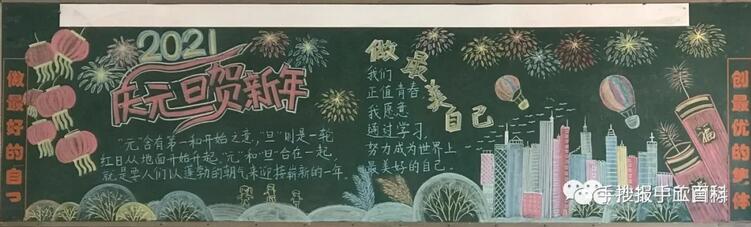 做最好的自己
2021
庆元旦贺新年
"元"含有第一和开始之意,"旦"则是一轮
红日从地面开始升起,"元"和"旦"合在一起,
就是要人们以蓬勃的朝气来迎接崭新的一年。
做最美自己
我们
正值青春,
我愿意
通过学习,
努力成为世界上
最美好的自己。
福
创最优的集体
手抄报手工百科